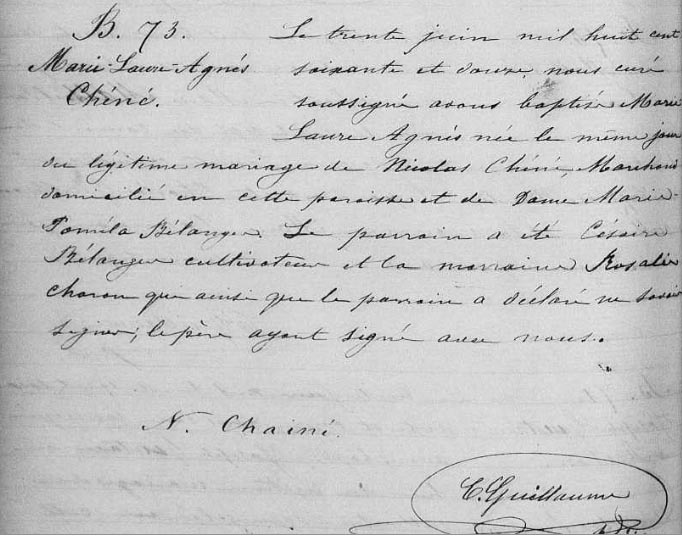 B. 73.
Marie-Laure-Agnés
Chéné.
Le trente juin mil huit cent
soixante et douze, nous curé
soussigné avons baptisé Marie
Laure Agnés née le même jour
du légitime mariage de Nicolas Chéné, Marchand
domicilié en cette paroisse et de Dame Marie-
Poméla Bélanger. Le parrain a été Césaire
Bélanger cultivateur et la marraine Rosalie
Charon qui ainsi que le parrain a déclaré ne savoir
signer; le père ayant signé avec nous.
N. Chainé.
C. Guillaume